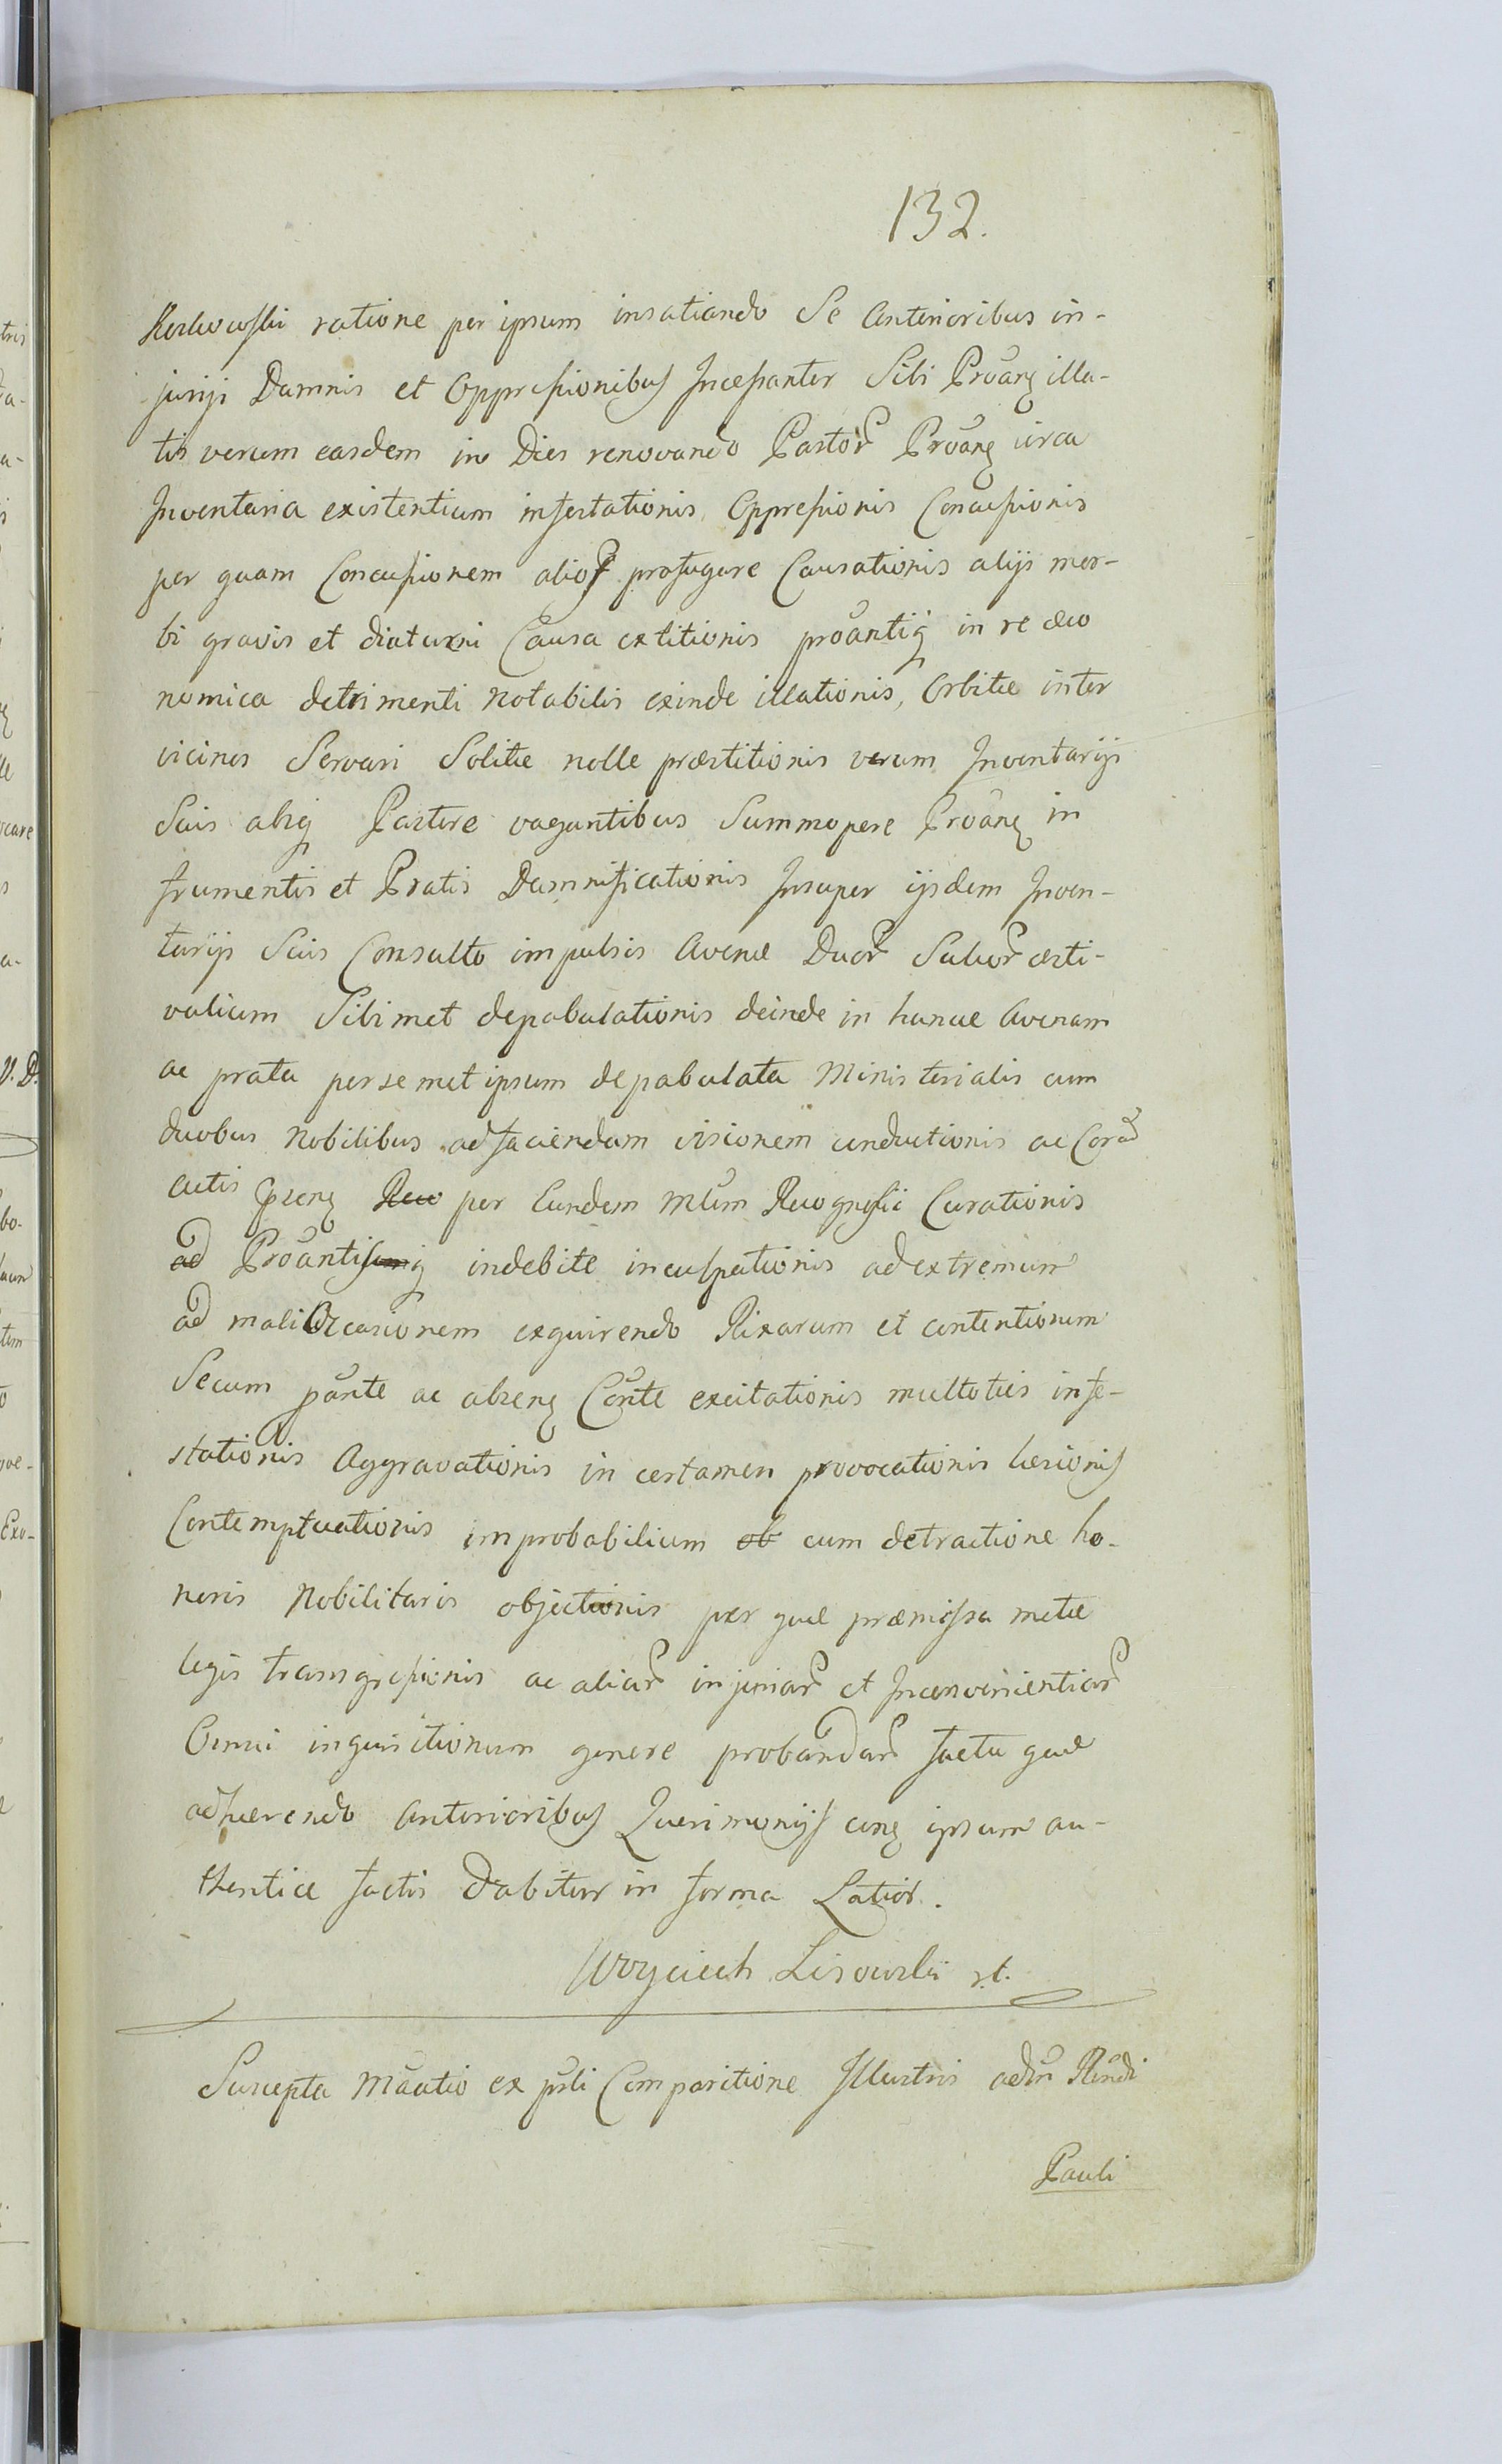 132.
ratione per ipsum insatiando Se Anterioribus in-
jurijs Damnis et Oppressionibus Incessanter Sibi Proãnz illa-
tis verum easdem in Dies renovando Pastor Proãnz circa
Inventaria existentium infestationis Oppressionis Concussionis
per quam Concussionem alios profugere Causationis alijs mor-
bi gravis et diaturni Causa extitionis proãntiq in re œco
nomica detrimenti notabilis exinde illationis, Orbitæ inter
vicinos Servari Solitæ nolle præstitionis verum Inventarijs
Suis absq Pastore vagantibus Summopere Proãnz in
frumentis et Pratis Damnificationis Insuper ijsdem Inven-
tarijs Suis Consulto impulsis Avenæ Duor æsti-
valium Sibimet depabulationis deinde in hancce Avenam
ac prata persemet ipsum depabulata Ministerialis cum
duobus Nobilibus ad faciendam visionem conductionis ac Cora
actis per Eundem Mlŭm Curationis
ad indebite inculpationis ad extremum
ad mali Occasionem exquirendo Rixarum et contentionum
Secum pãnte ac absenz Cõnte excitationis multoties infe-
stationis Aggravationis in certamen provocationis læsionis
Contemptuationis improbabilium ob cum detractione ho-
noris Nobilitaris objectionis per quæ præmissa metæ
legis transgressionis ac aliar injuriar et Inconvenientiar
Omni inquisitionum genere probandar facta quæ
adhærendo Anterioribus Querimonijs conz ipsum au-
thentice factis Dabitur in forma Latior.
Woyciech Lisowski
Suscepta Mãatio ex pñli Comparitione Illustris adm̃ Rñdi
Pauli